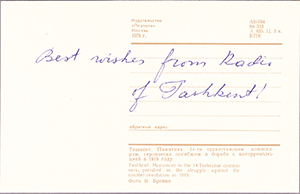 Издательство
«Планета»
Москва
1978 г.
Best wishes from Radio
of Tashkent!
обратный адрес
Ташкент. Памятник 14-ти туркестанским комисса-
рам, героически погибшим в борьбе с контрреволю-
цией в 1919 году
Tashkent. Monument to the 14 Turkestan commis-
sars, perished in the struggle against the
counter-revolution in 1919
Фото